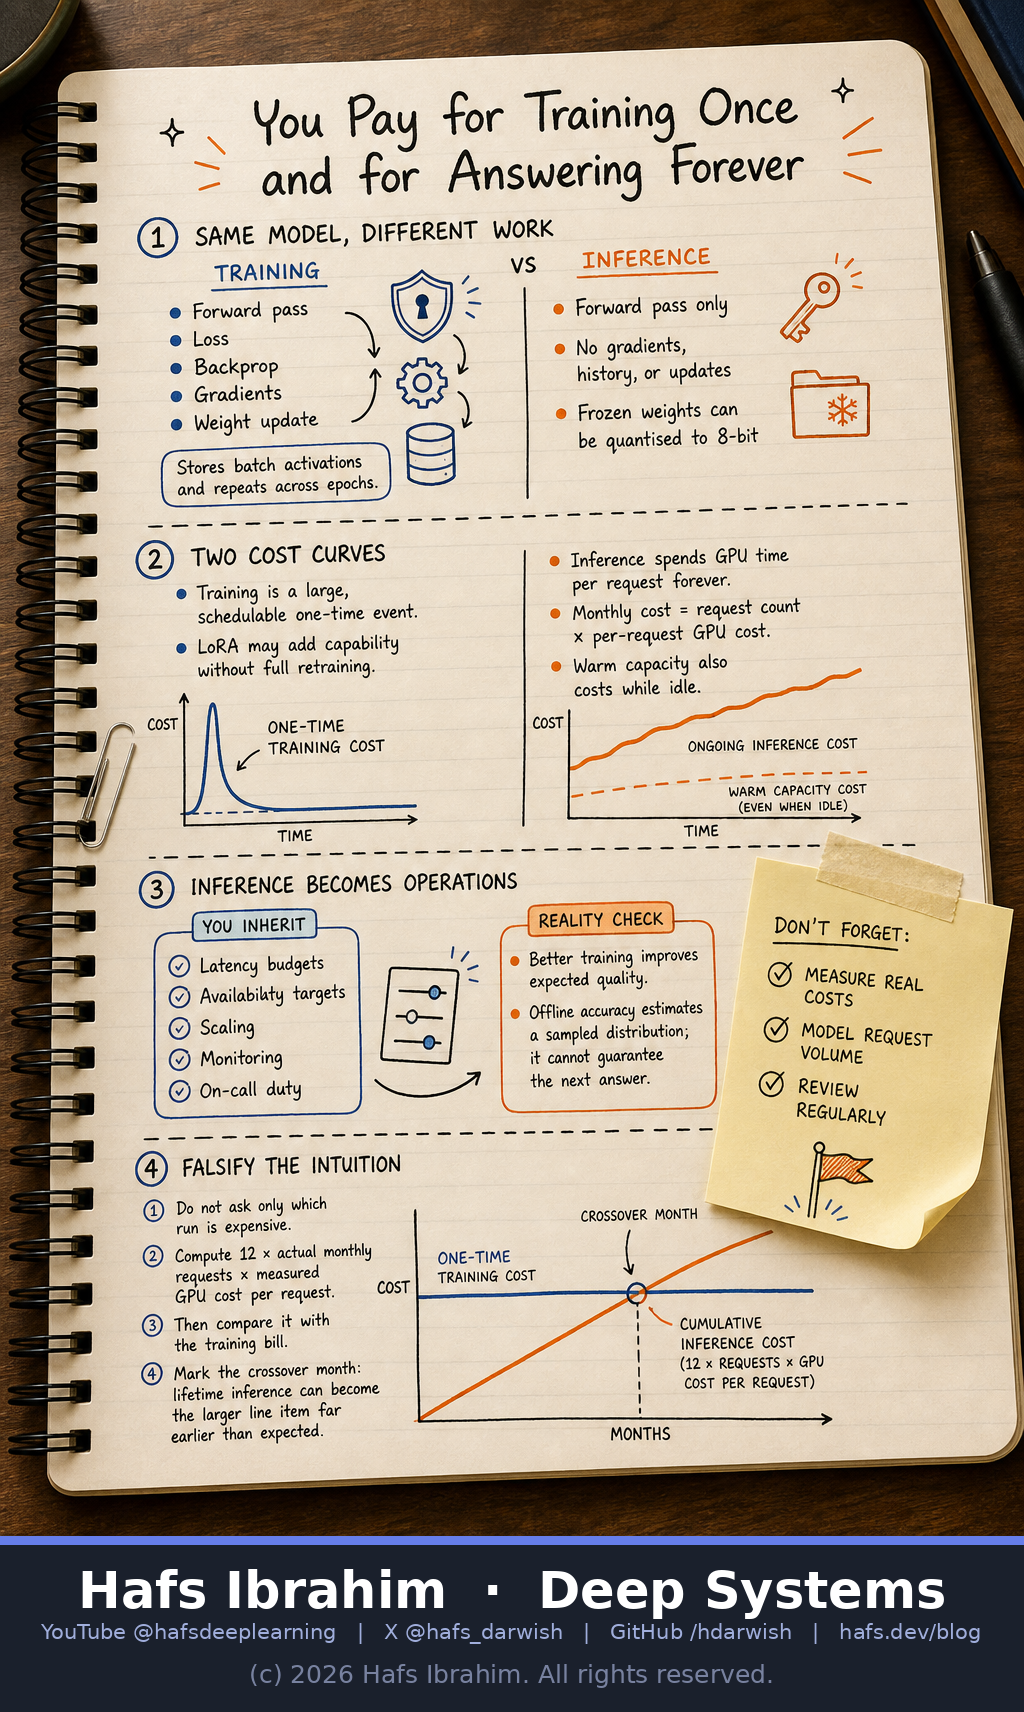 You Pay for Training Once
and for Answering Forever
1 SAME MODEL, DIFFERENT WORK
TRAINING
Forward pass
Loss
Backprop
Gradients
Weight update
Stores batch activations
and repeats across epochs.
VS
INFERENCE
Forward pass only
No gradients,
history, or updates
Frozen weights can
be quantised to 8-bit
2 TWO COST CURVES
Training is a large,
schedulable one-time event.
LoRA may add capability
without full retraining.
COST
ONE-TIME
TRAINING COST
TIME
Inference spends GPU time
per request forever.
Monthly cost = request count
× per-request GPU cost.
Warm capacity also
costs while idle.
COST
ONGOING INFERENCE COST
WARM CAPACITY COST
(EVEN WHEN IDLE)
TIME
3 INFERENCE BECOMES OPERATIONS
YOU INHERIT
Latency budgets
Availability targets
Scaling
Monitoring
On-call duty
REALITY CHECK
Better training improves
expected quality.
Offline accuracy estimates
a sampled distribution;
it cannot guarantee
the next answer.
DON'T FORGET:
MEASURE REAL
COSTS
MODEL REQUEST
VOLUME
REVIEW
REGULARLY
4 FALSIFY THE INTUITION
1 Do not ask only which
run is expensive.
2 Compute 12 × actual monthly
requests × measured
GPU cost per request.
3 Then compare it with
the training bill.
4 Mark the crossover month:
lifetime inference can become
the larger line item far
earlier than expected.
CROSSOVER MONTH
ONE-TIME
TRAINING COST
COST
CUMULATIVE
INFERENCE COST
(12 × REQUESTS × GPU
COST PER REQUEST)
MONTHS
Hafs Ibrahim · Deep Systems
YouTube @hafsdeeplearning | X @hafs_darwish | GitHub /hdarwish | hafs.dev/blog
(c) 2026 Hafs Ibrahim. All rights reserved.